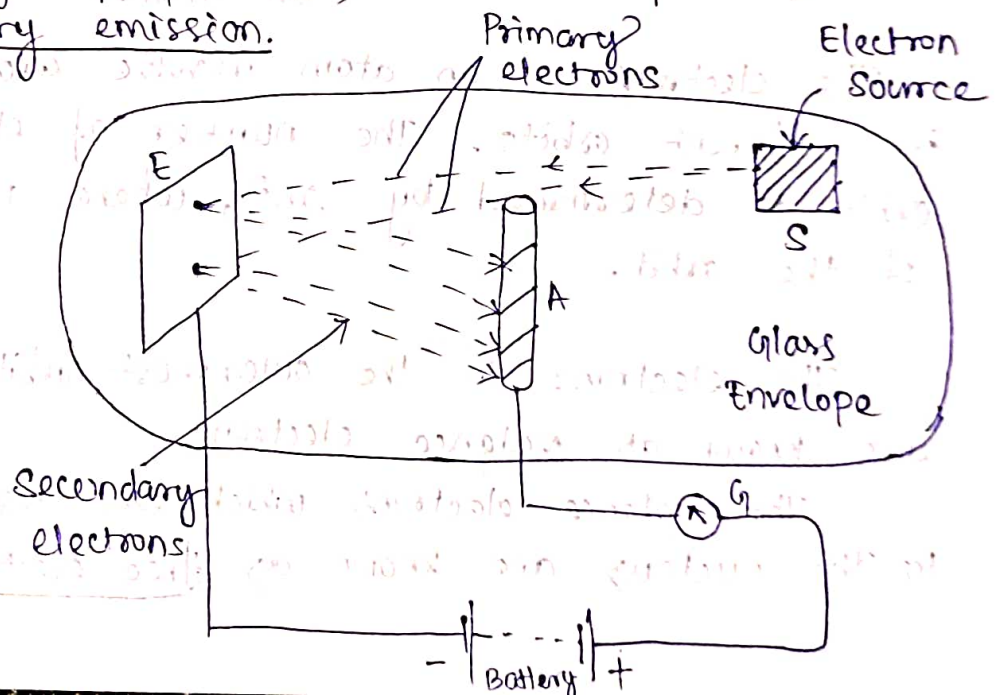 ry emission.
Primary
electrons
Electron
Source
E
S
A
Glass
Envelope
Secondary
electrons
G
- Battery +